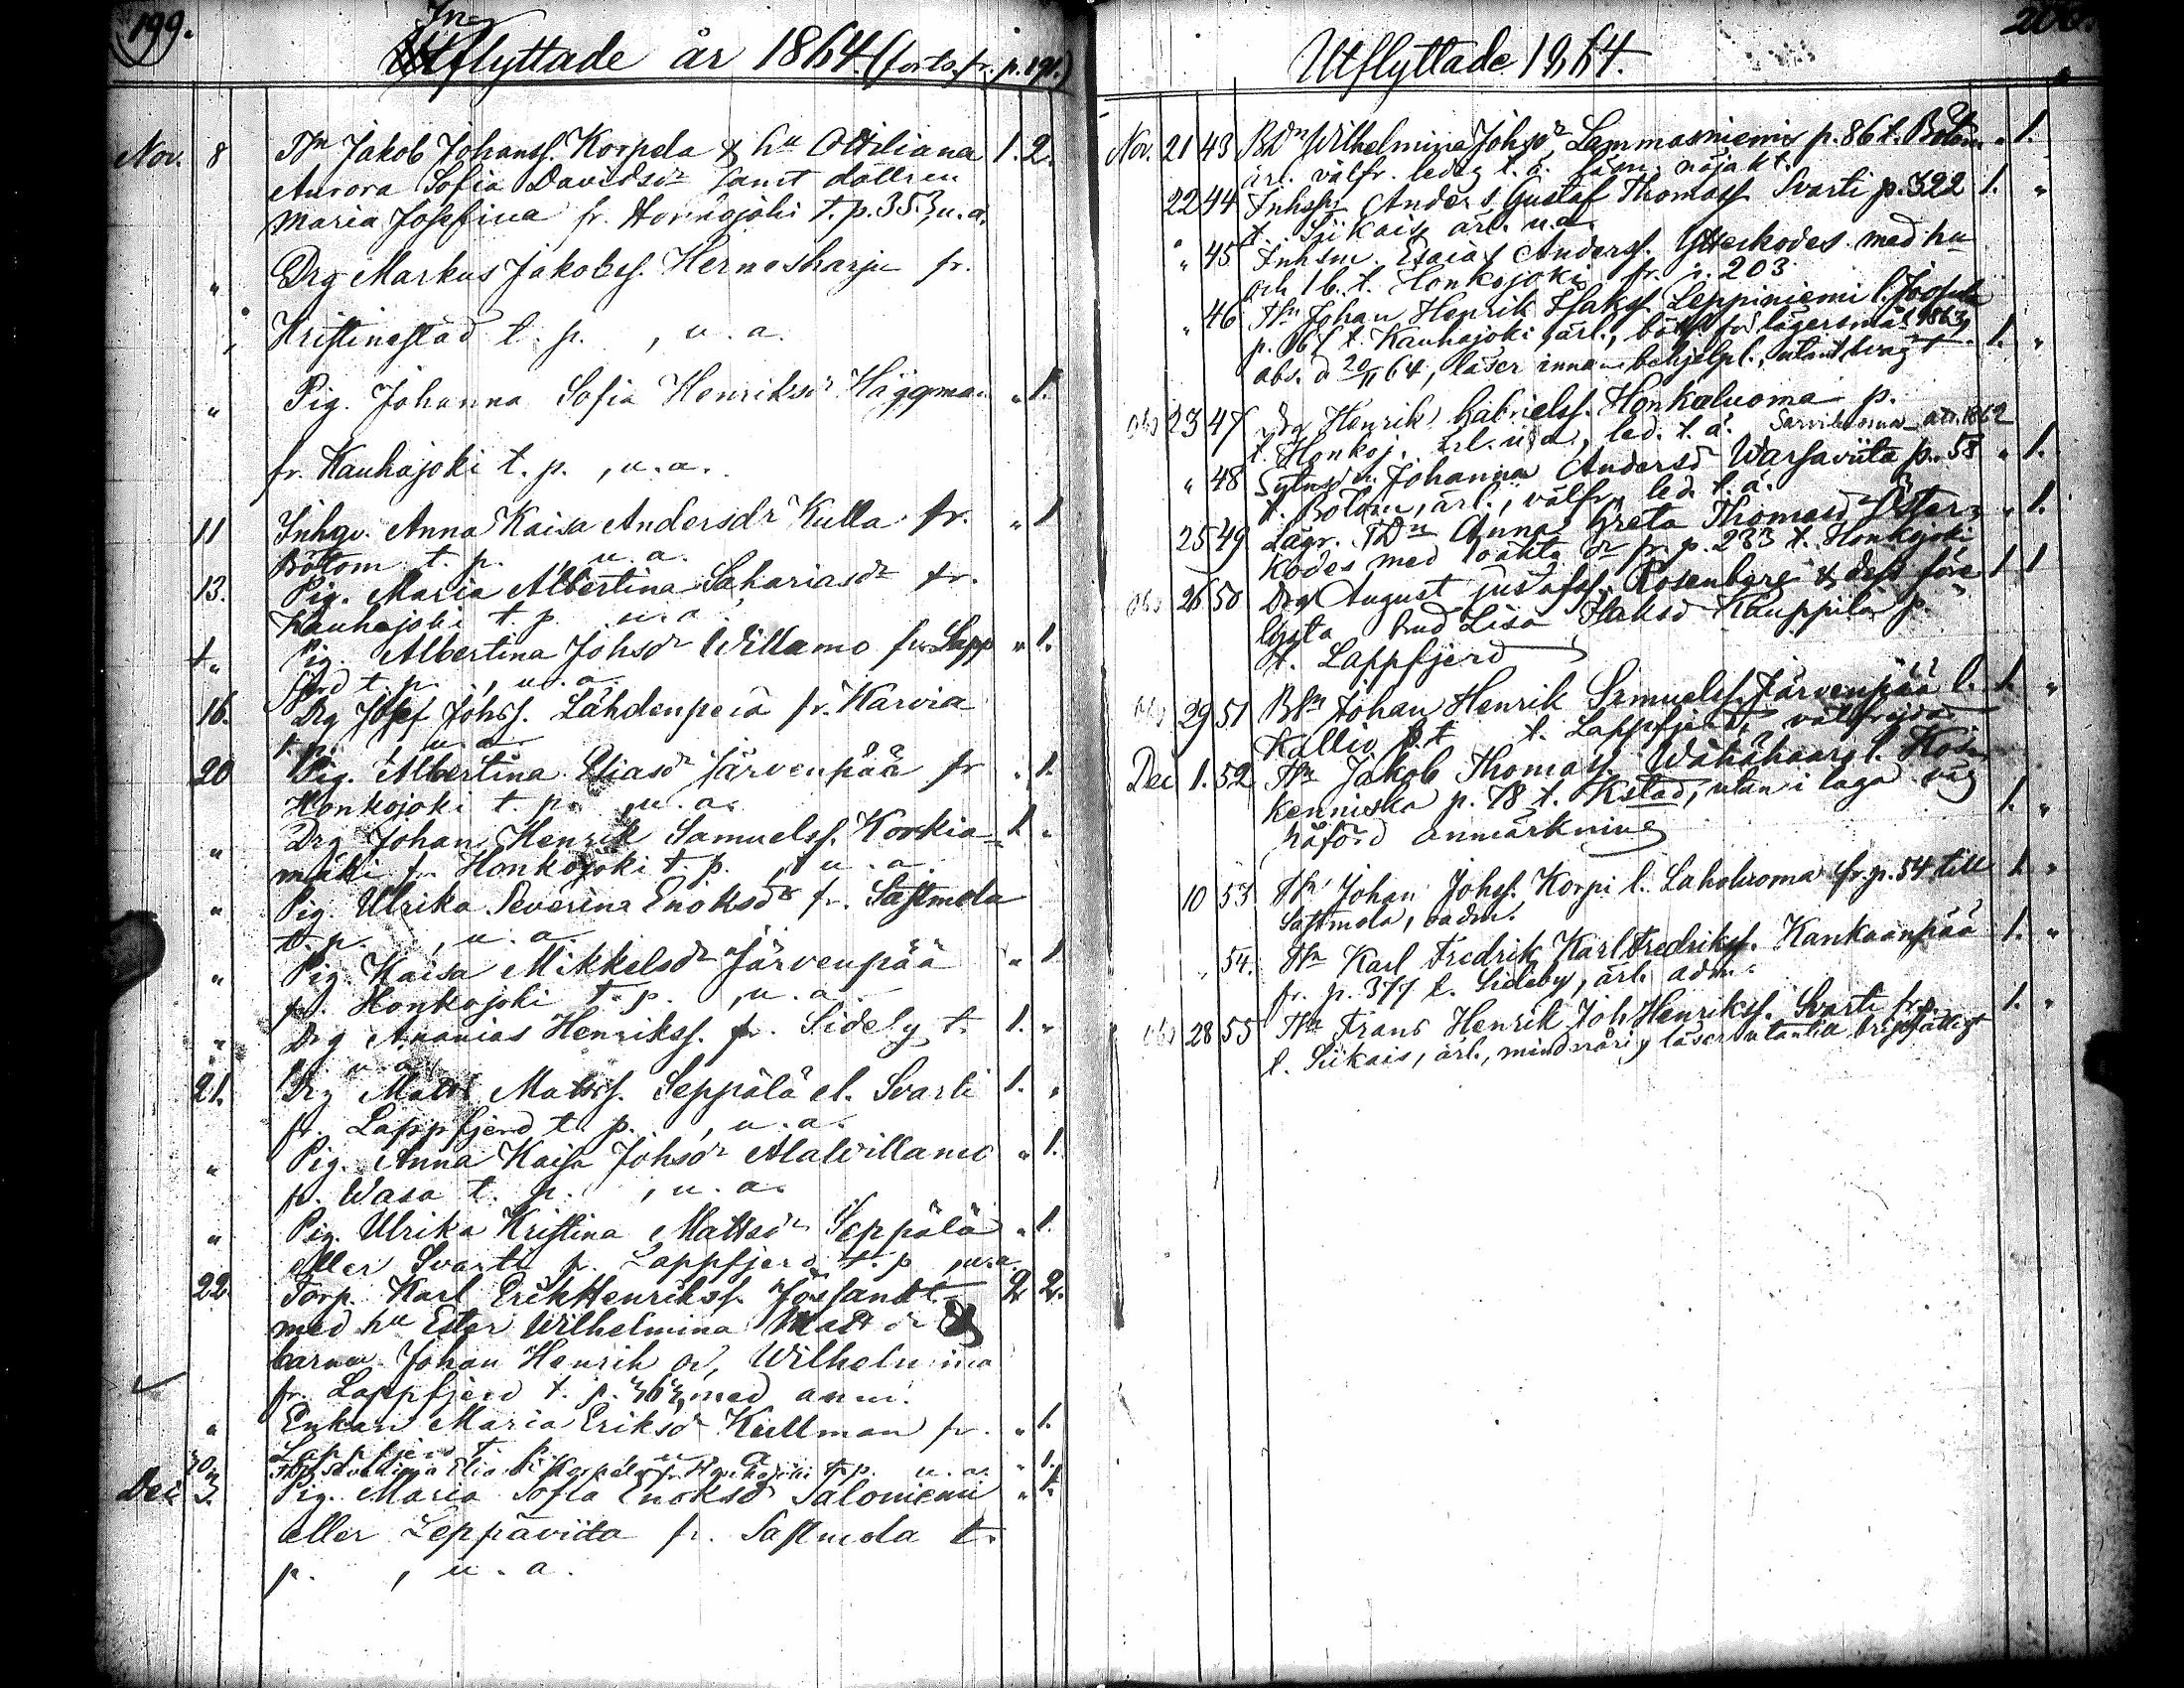 199.
In
Utflyttade år 1864 (forts. fr. p. 191.)
Nov. 8 Tn Jakob Johanss. Korpela & hu Ottiliana 1. 2.
Aurora Sofia Davidsdr samt dottren
Maria Josefina fr. Honkojoki t. p. 353, u. a.
" Drg Markus Jakobss. Hernesharju fr.
Kristinestad t. p. , u. a.
" Pig. Johanna Sofia Henriksdr Häggman " 1.
fr. Kauhajoki t. p. , u. a.
11 Inhqv. Anna Kaisa Andersdr Kulla fr. " 1
Bötom t. p. , u. a.
13. Pig. Maria Albertina Sakariasdr fr.
Kauhajoki t. p. u. a.
t " Pig. Albertina Johsdr Willamo fr. Lapp " 1.
fjerd t. p. , u. a.
16. Drg Josef Johss. Lähdenpeiä fr. Karvia
t. p. u. a.
20 Pig. Albertina Eliasdr Järvenpää fr " 1.
Honkojoki t. p. , u. a.
" Drg Johan Henrik Samuelss. Korkia- 1 "
mäki fr. Honkojoki t. p. , u. a.
" Pig. Ulrika Severina Enoksdr fr. Sastmola
t. p. , u. a.
" Pig. Kaisa Mikkelsdr Järvenpää " 1
fr. Honkojoki t. p. , u. a.
" Drg Ananias Henrikss. fr. Sideby t. 1. "
p. u. a.
21. Drg Matts Matss. Seppälä el. Svarti 1. "
fr. Lappfjerd t. p. , u. a.
" Pig. Anna Kaisa Johsdr Alavillamo " 1.
fr. Wasa t. p. , u. a.
" Pig. Ulrika Kristina Mattsdr Seppälä " 1.
eller Svarti fr. Lappfjerd t. p , u. a.
22. Torp. Karl Erik Henrikss. Jössandt 2 2.
med hu Ester Wilhelmina Matsdr &
barnen Johan Henrik o, Wilhelmina
fr. Lappfjerd t. p. 363, med anm.
" Enkan Maria Eriksdr Kullman fr. " 1.
Lappfjerd t. p. u. a
30 t. p. u. a. " 1.
Dec 3. Pig. Maria Sofia Enoksdr Saloniemi " 1.
eller Leppäviita fr. Sastmola t.
p. , u. a.
200.
Utflyttade 1864.
Nov. 21 43 Bdn Wilhelmina Johsdr Lammasniemi p. 86 t. Bötom " 1.
ärl. välfr. ledig t. ä. nöjakt.
22 44 Inhsn Anders Gustaf Thomass Svarti p. 322 1. "
t. Siikais ärl. u. a.
" 45 Inhsm. Esaias Anderss. Ytterkodes med hu
och 1 b. t. Honkojoki fr. p. 203
" 46 Tn Johan Henrik Isakss. Leppiniemi l.
p. 167 t. Kauhajoki ärl., lägersmål 1863, 1. "
abs. d 20/11 64, läser innan behjelpl., utant. svagt
obs 23 47 Drg Henrik Gabrielss. Honkaluoma p.
t. Honkoj. ärl. u. a, led. t. ä. 1862
" 48 Johanna Andersd Warsaviita p. 58 " 1.
t. Bötom, ärl., välfr., led. t. ä.
25 49 Lägr. TDn Anna Greta Thomasd Ytter- " 1.
kodes med oäkta dr fr. p. 283 t. Honkojoki
obs 26 50 Drg August Gustafss. Rosenberg & dess före 1 1
lysta brud Lisa Isaksd Kauppila p "
t. Lappfjerd
obs 29 51 Bsn Johan Henrik Samuelss. Järvenpää l. 1. "
Kallio p. t. Lappfjerd, välfrejdad
Dec 1. 52 Tn Jakob Thomass. Wähähaara l. Kos-
kenniska p. 78 t. Kstad, utan i laga väg 1. "
häförd anmärkning
10 53 Tn Johan Johss. Korpi l. Laholuoma fr. p. 54 till 1. "
Sastmola,
" 54. Tn Karl Fredrik Karl Fredrikss. Kankaanpää 1. "
fr. p. 377 t. Sideby, ärl. adm.
obs 28 55 Tn Frans Henrik Joh Henrikss. Svarti fr p. 1. "
t. Siikais, ärl., minderårig läser utantill bristfälligt